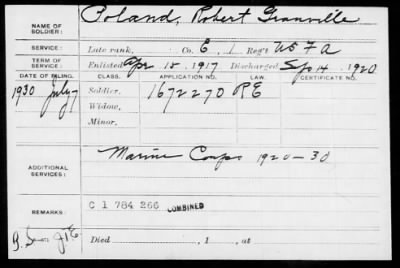 NAME OF SOLDIER: Poland, Robert Granville
SERVICE: Late rank, Co. E, 1 Reg't US F A
TERM OF SERVICE: Enlisted Apr 15, 1917 Discharged Sep 14, 1920
DATE OF FILING. CLASS. APPLICATION NO. LAW. CERTIFICATE NO.
1930 July 7 Soldier, 1672270 P E
Widow,
Minor,
ADDITIONAL SERVICES: Marine Corps 1920-30
REMARKS: C 1 784 266 COMBINED
Died , 1 , at